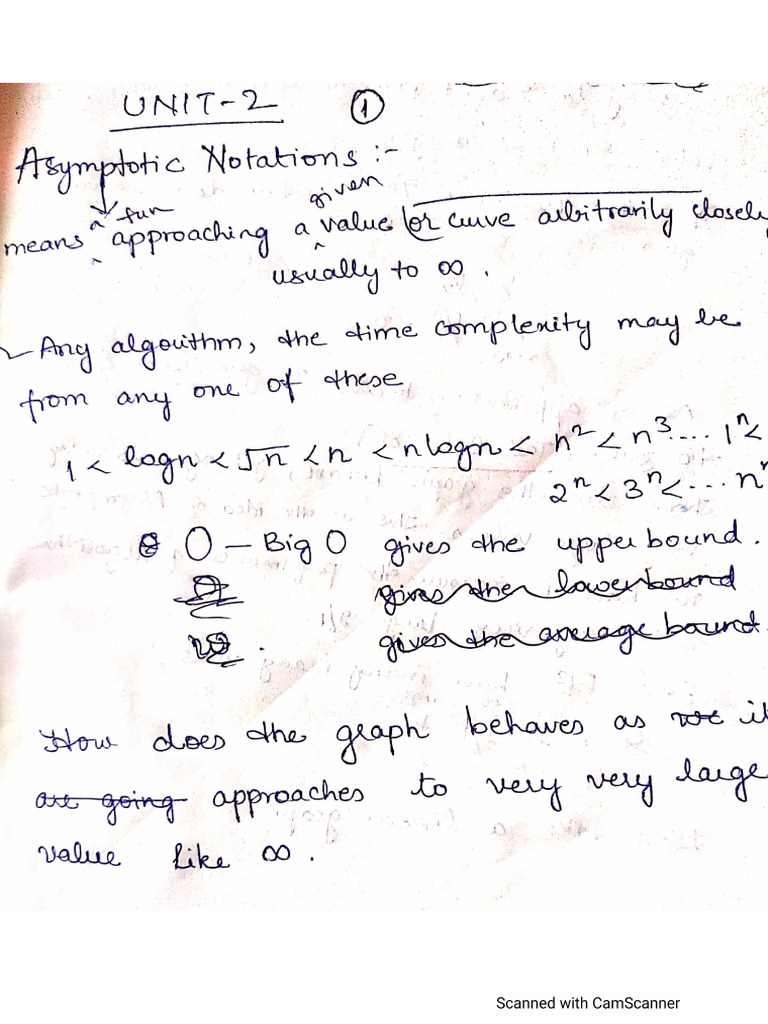 UNIT-2 ①
Asymptotic Notations :-
a fun given
means approaching a value (or curve arbitrarily closely
usually to ∞ .
Any algorithm, the time complexity may be
from any one of these
1 < logn < √n < n < nlogn < n² < n³ .... 1ⁿ <
2ⁿ < 3ⁿ < ... nⁿ
O – Big O gives the upper bound .
gives the lower bound
gives the average bound.
How does the graph behaves as we it
are going approaches to very very large
value like ∞ .
Scanned with CamScanner